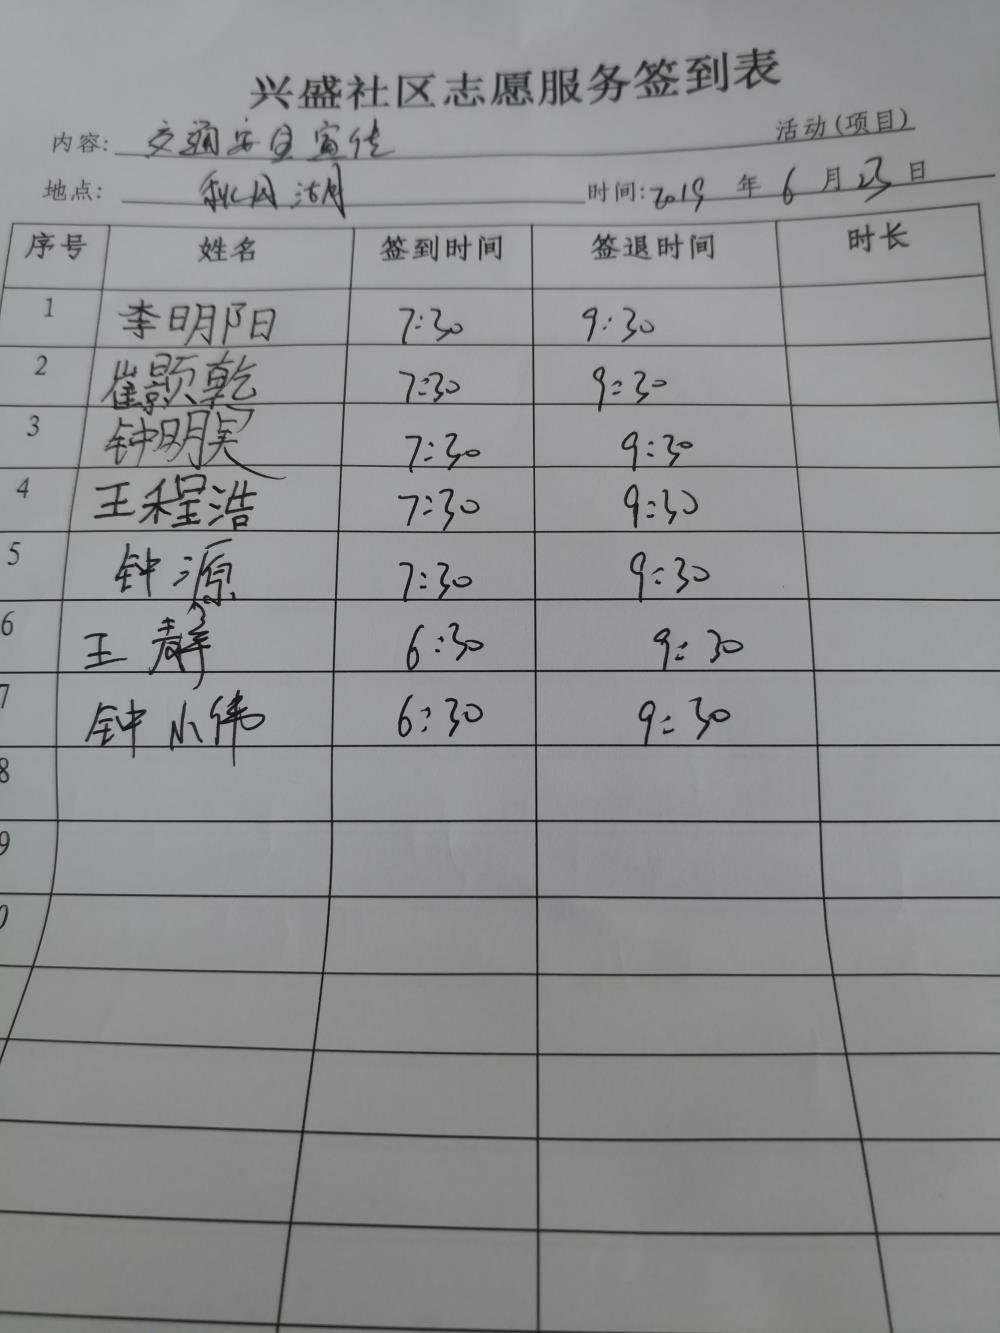 兴盛社区志愿服务签到表
内容: 交通安全宣传 活动(项目)
地点: 秋月湖 时间: 2019 年 6 月 23 日
序号 姓名 签到时间 签退时间 时长
1 李明阳 7:30 9:30
2 崔颢乾 7:30 9:30
3 钟明昊 7:30 9:30
4 王程浩 7:30 9:30
5 钟源 7:30 9:30
6 王静 6:30 9:30
7 钟小伟 6:30 9:30
8
9
0